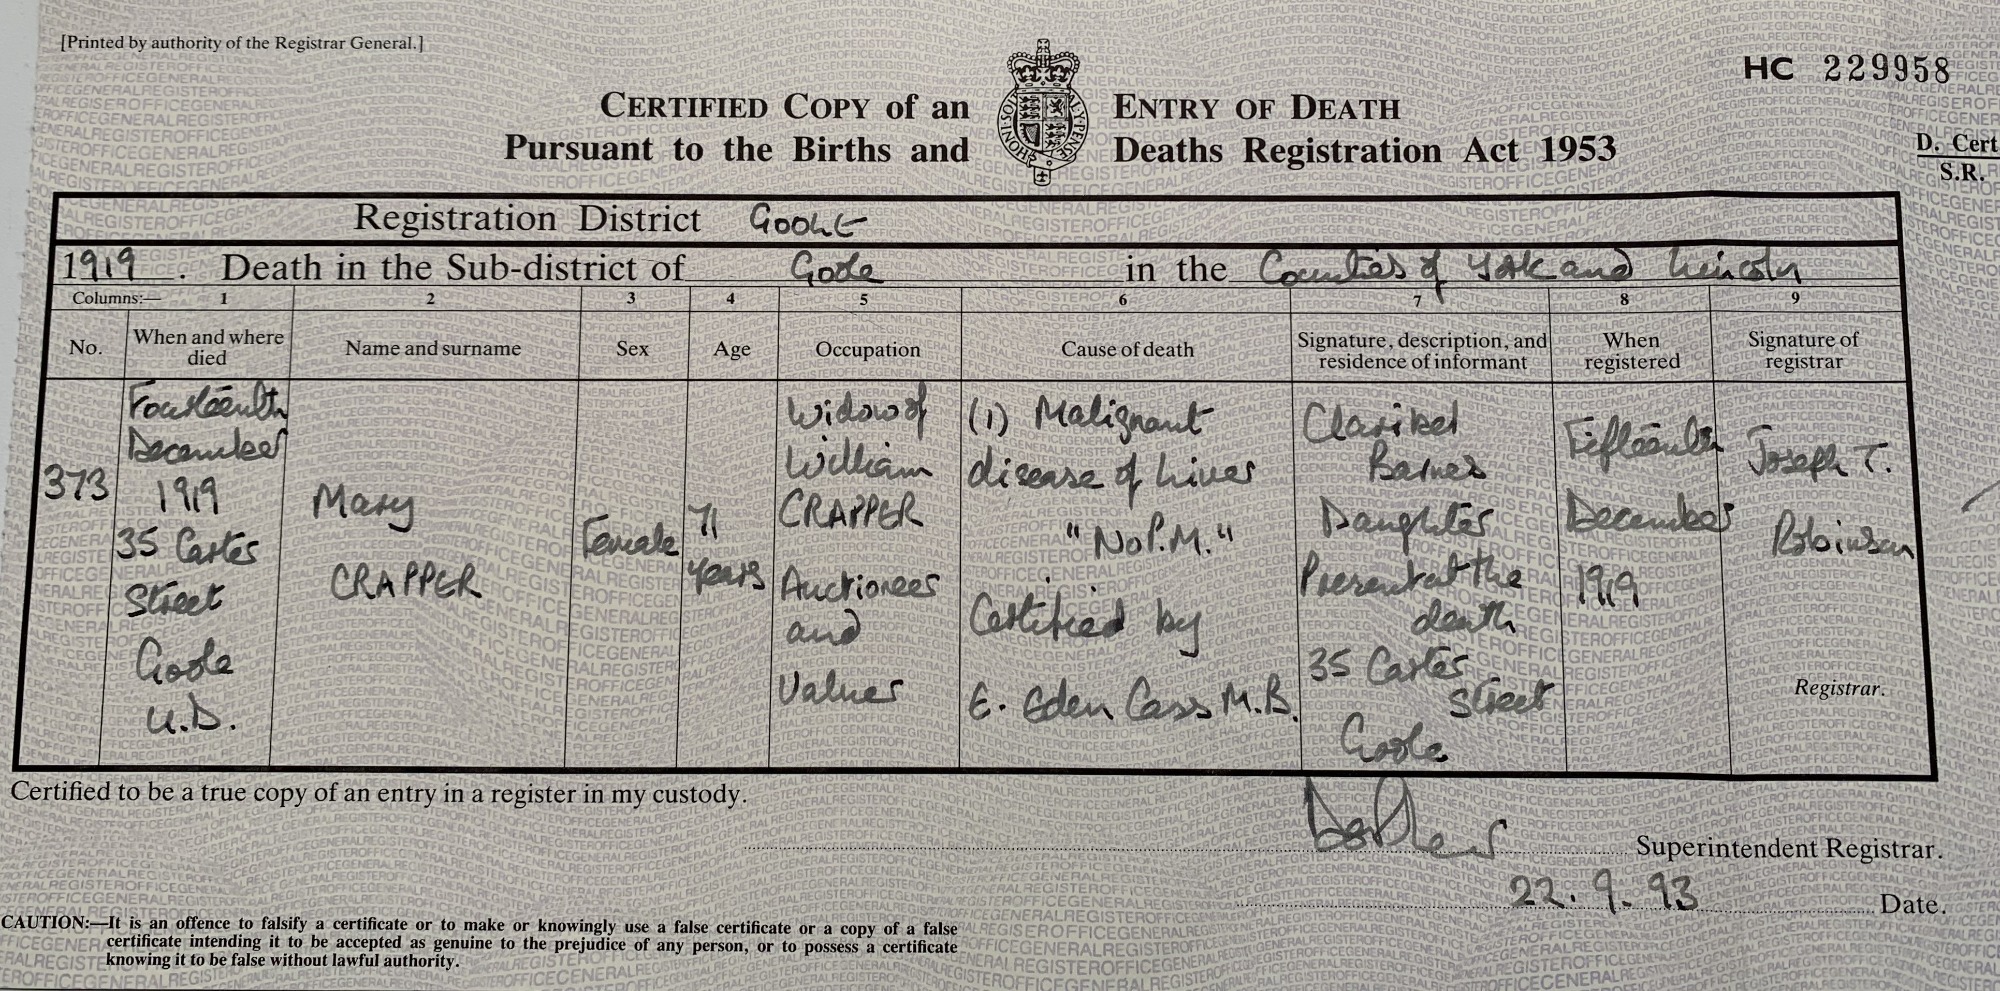 [Printed by authority of the Registrar General.]
HC 229958
CERTIFIED COPY of an ENTRY OF DEATH
Pursuant to the Births and Deaths Registration Act 1953
HONI·SOIT
MAL·Y·PENSE
D. Cert
S.R.
Registration District GOOLE
1919. Death in the Sub-district of Goole in the Counties of York and Lincoln
Columns:— 1 2 3 4 5 6 7 8 9
No.
When and where
died
Name and surname
Sex
Age
Occupation
Cause of death
Signature, description, and
residence of informant
When
registered
Signature of
registrar
373
Fourteenth
December
1919
35 Carter
Street
Goole
U.D.
Mary
CRAPPER
Female
71
years
Widow of
William
CRAPPER
Auctioneer
and
Valuer
(1) Malignant
disease of Liver
"No P.M."
Certified by
E. Eden Cass M.B.
Claribel
Barnes
Daughter
Present at the
death
35 Carter
Street
Goole
Fifteenth
December
1919
Joseph T.
Robinson
Registrar.
Certified to be a true copy of an entry in a register in my custody.
Superintendent Registrar.
22.9.93 Date.
CAUTION:—It is an offence to falsify a certificate or to make or knowingly use a false certificate or a copy of a false
certificate intending it to be accepted as genuine to the prejudice of any person, or to possess a certificate
knowing it to be false without lawful authority.